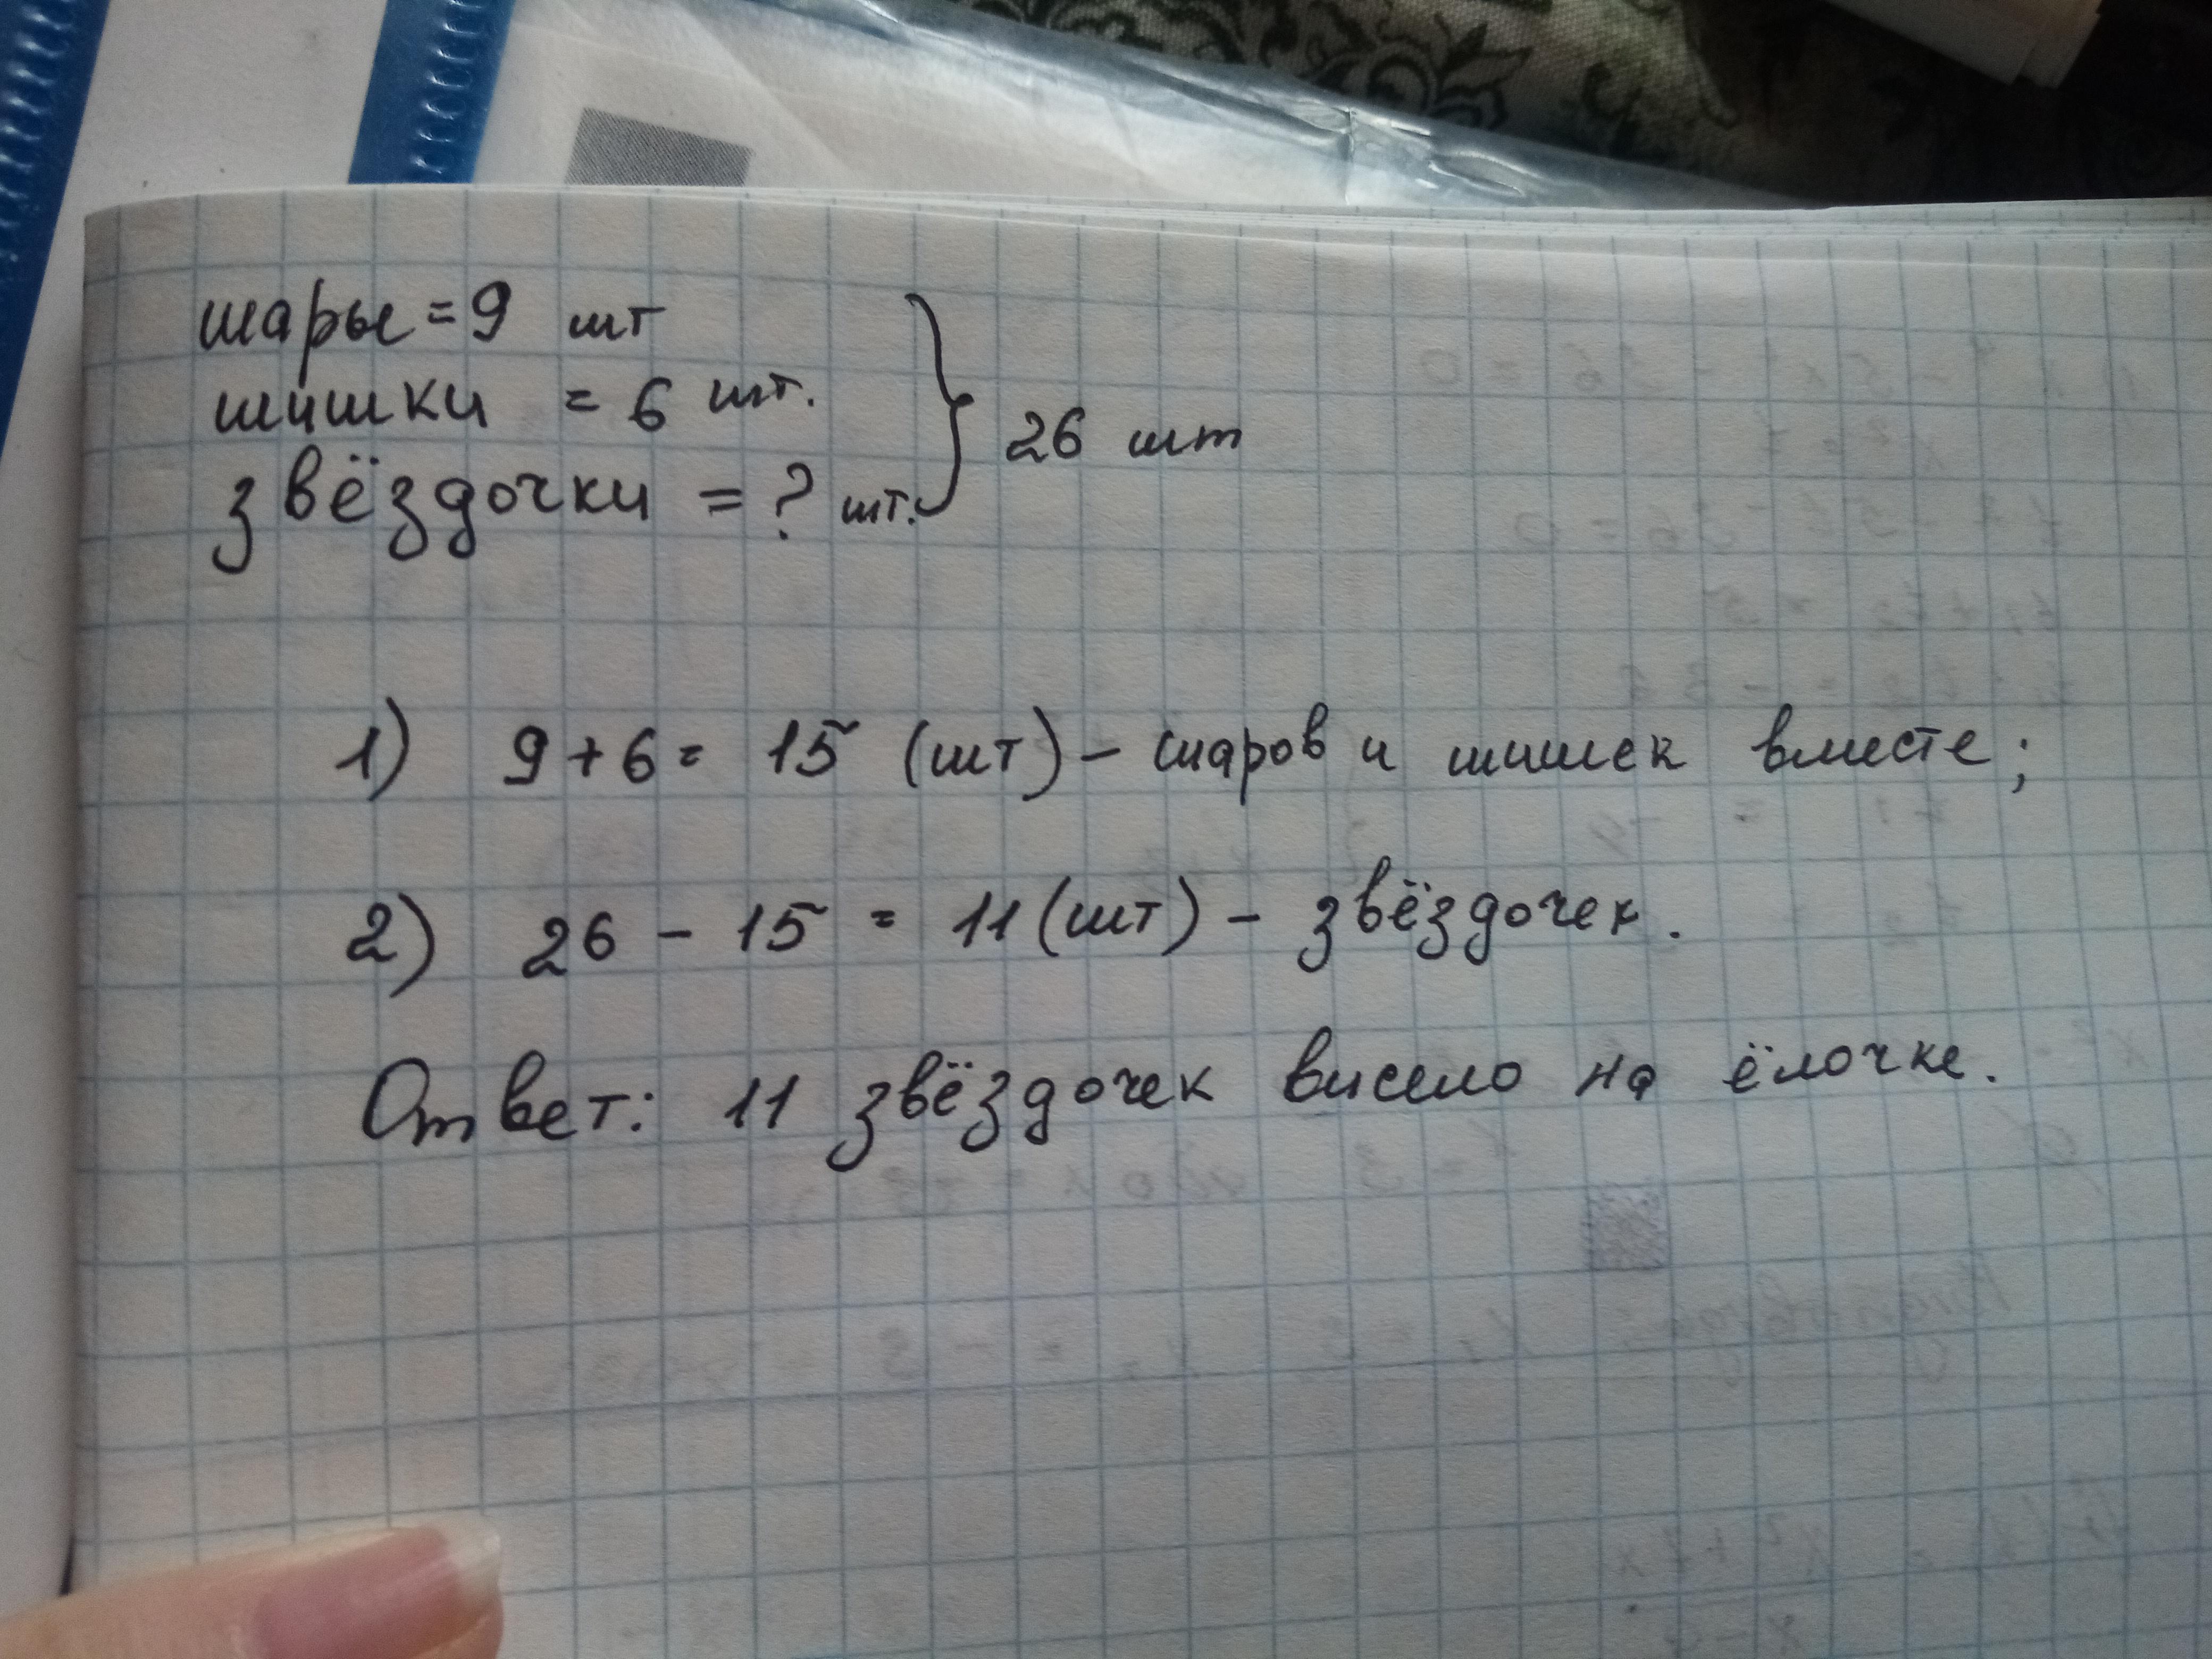 шары = 9 шт
шишки = 6 шт.
звёздочки = ? шт.
26 шт
1) 9 + 6 = 15 (шт) - шаров и шишек вместе;
2) 26 - 15 = 11 (шт) - звёздочек.
Ответ: 11 звёздочек висело на ёлочке.